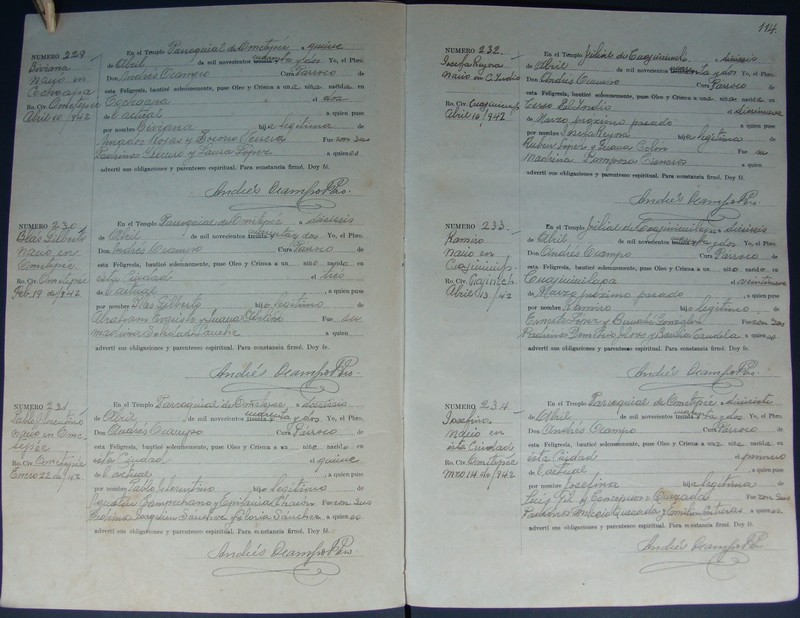 NUMERO 229
Viviana
Nacio en
Cochoapa
Ro. Civ. Ometepec
Abril 10/942
En el Templo Parroquial de Ometepec a quince
de Abril de mil novecientos treinta cuarenta y dos Yo, el Pbro.
Don Andrés Ocampo Cura Párroco de
esta Feligresía, bauticé solemnemente, puse Oleo y Crisma a una niña nacida en
Cochoapa el dos
de l'actual a quien puse
por nombre Viviana hija legítima de
Rosas y Fue ron sus
Padrinos y Laura López a quienes
advertí sus obligaciones y parentesco espiritual. Para constancia firmé. Doy fé.
Andrés Ocampo Pbro.
NUMERO 230
Blas Gilberto
Nacio en
Ometepec
Ro. Civ. Ometepec
Feb. 19 de 1942
En el Templo Parroquial de Ometepec a dieciseis
de Abril de mil novecientos treinta cuarenta y dos Yo, el Pbro.
Don Andrés Ocampo Cura Párroco de
esta Feligresía, bauticé solemnemente, puse Oleo y Crisma a un niño nacido en
esta Ciudad el tres
de l'actual, a quien puse
por nombre Blas Gilberto hijo legítimo de
Abraham y Juana Fue su
madrina Soledad a quien
advertí sus obligaciones y parentesco espiritual. Para constancia firmé. Doy fé.
Andrés Ocampo Pbro.
NUMERO 231
Pablo
Nacio en Ome-
tepec
Ro. Civ. Ometepec
Enero 22 de 942
En el Templo Parroquial de Ometepec, a dieciseis
de Abril de mil novecientos treinta cuarenta y dos Yo, el Pbro.
Don Andrés Ocampo Cura Párroco de
esta Feligresía, bauticé solemnemente, puse Oleo y Crisma a un niño nacido en
esta Ciudad el quince
de l'actual, a quien puse
por nombre Pablo hijo legítimo de
y Epifania Fue ron sus
Joaquin Sánchez y Gloria Sánchez a quienes
advertí sus obligaciones y parentesco espiritual. Para constancia firmé. Doy fé.
Andrés Ocampo Pbro.
114.
NUMERO 232.
Josefa Reyna
Nacio en C. Indio
Ro. Civ. Cuajinicuil.
Abril 10/942
En el Templo filial de a dieciseis
de Abril de mil novecientos treinta cuarenta y dos Yo, el Pbro.
Don Andrés Ocampo Cura Párroco de
esta Feligresía, bauticé solemnemente, puse Oleo y Crisma a una niña nacida en
Cerro del Indio a diecinueve
de Marzo próximo pasado a quien puse
por nombre Josefa Reyna hija legítima de
Ruben López y Juana Colón Fue su
Madrina Cisneros a quien
advertí sus obligaciones y parentesco espiritual. Para constancia firmé. Doy fé.
Andrés Ocampo Pbro.
NUMERO 233.
Ramiro
Nacio en
Ro. Civ.
Abril 13/42
En el Templo filial de a dieciseis
de Abril, de mil novecientos treinta cuarenta y dos Yo, el Pbro.
Don Andrés Ocampo Cura Párroco de
esta Feligresía, bauticé solemnemente, puse Oleo y Crisma a un niño nacido en
a veintinueve
de Marzo próximo pasado, a quien puse
por nombre Ramiro hijo legítimo de
Ernesto López y González Fue ron sus
Padrinos y a quienes
advertí sus obligaciones y parentesco espiritual. Para constancia firmé. Doy fé.
Andrés Ocampo Pbro.
NUMERO 234
Josefina
Nació en
esta Ciudad
Ro. Civ. Ometepec
Mzo 14 de/942
En el Templo Parroquial de Ometepec a
de Abril de mil novecientos treinta cuarenta y dos Yo, el Pbro.
Don Andrés Ocampo Cura Párroco de
esta Feligresía, bauticé solemnemente, puse Oleo y Crisma a una niña nacida en
esta Ciudad a primero
de l'actual, a quien puse
por nombre Josefina hija legítima de
Luis Gil y Concepcion Quezada Fue ron sus
Padrinos Quezada y a quienes
advertí sus obligaciones y parentesco espiritual. Para constancia firmé. Doy fé.
Andrés Ocampo Pbro.